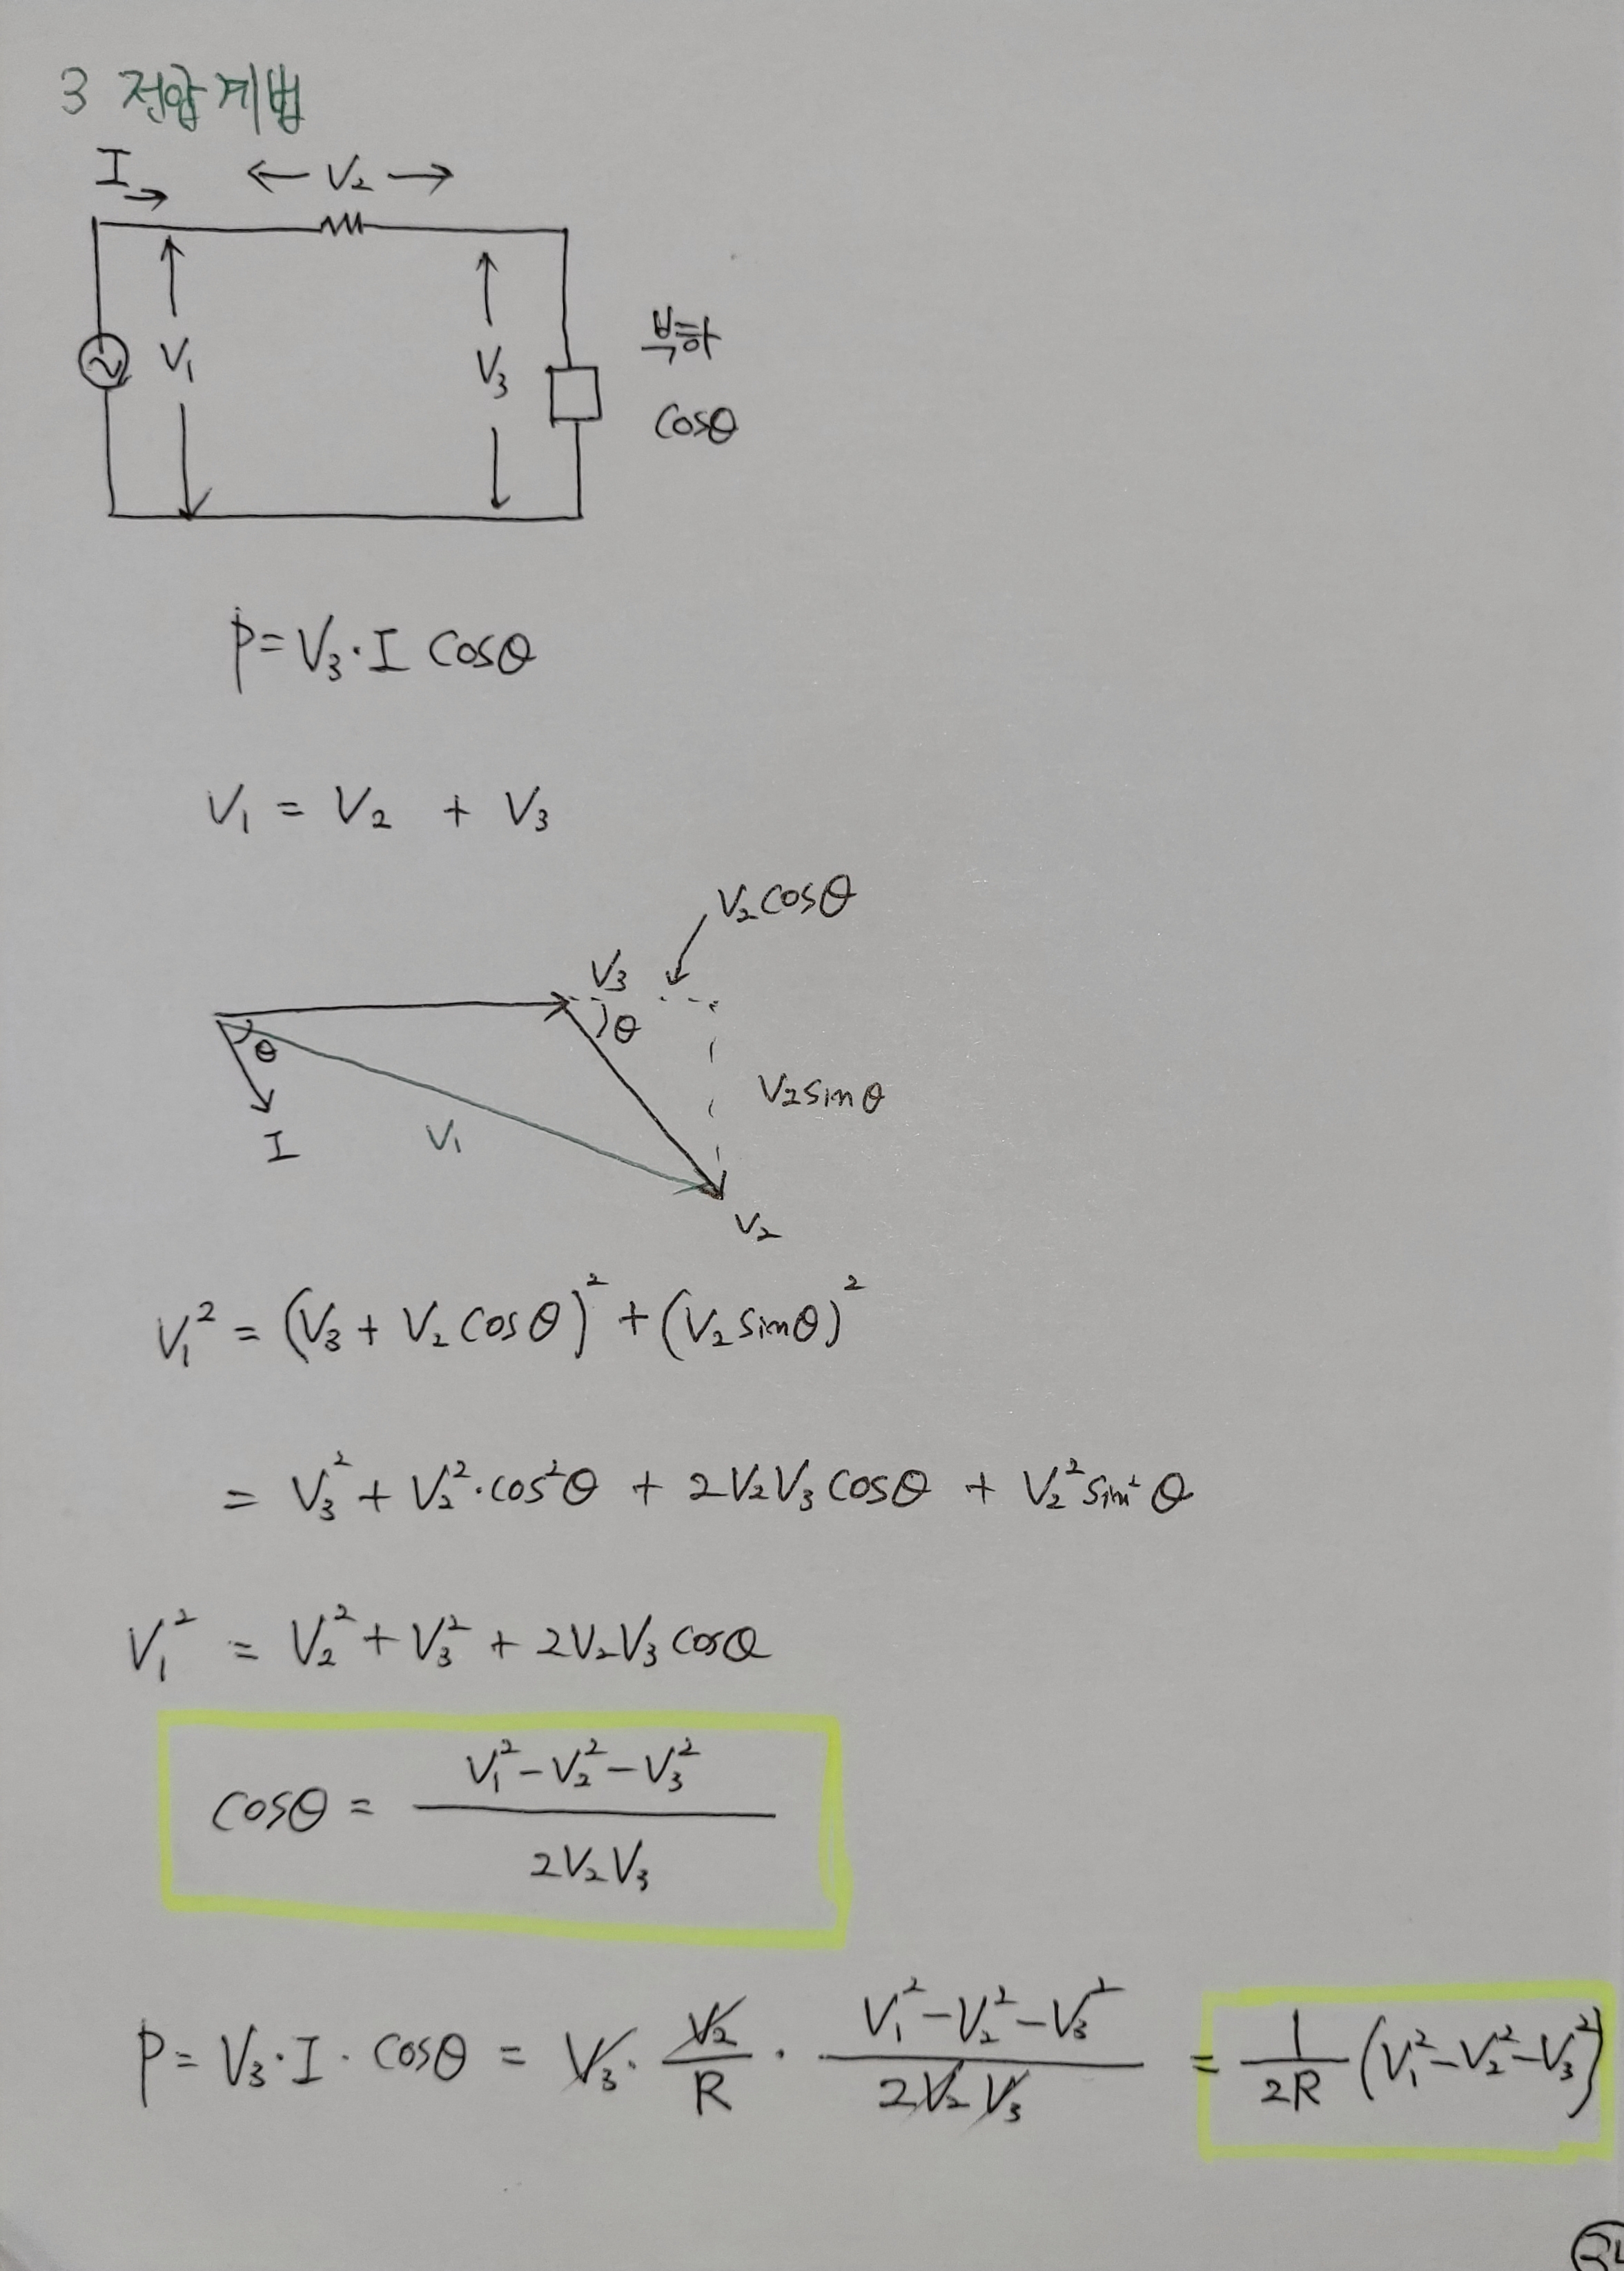 3 전압계법
I → ← V₂ →
V₁
V₃
부하
cosθ
P = V₃·I cosθ
V₁ = V₂ + V₃
V₂cosθ
V₃
θ
θ
V₂sinθ
I
V₁
V₂
V₁² = (V₃ + V₂cosθ)² + (V₂sinθ)²
= V₃² + V₂²·cos²θ + 2V₂V₃cosθ + V₂²sin²θ
V₁² = V₂² + V₃² + 2V₂V₃cosθ
cosθ = (V₁² - V₂² - V₃²) / 2V₂V₃
P = V₃·I·cosθ = V₃ · V₂/R · (V₁² - V₂² - V₃²) / 2V₂V₃ = 1/2R (V₁² - V₂² - V₃²)